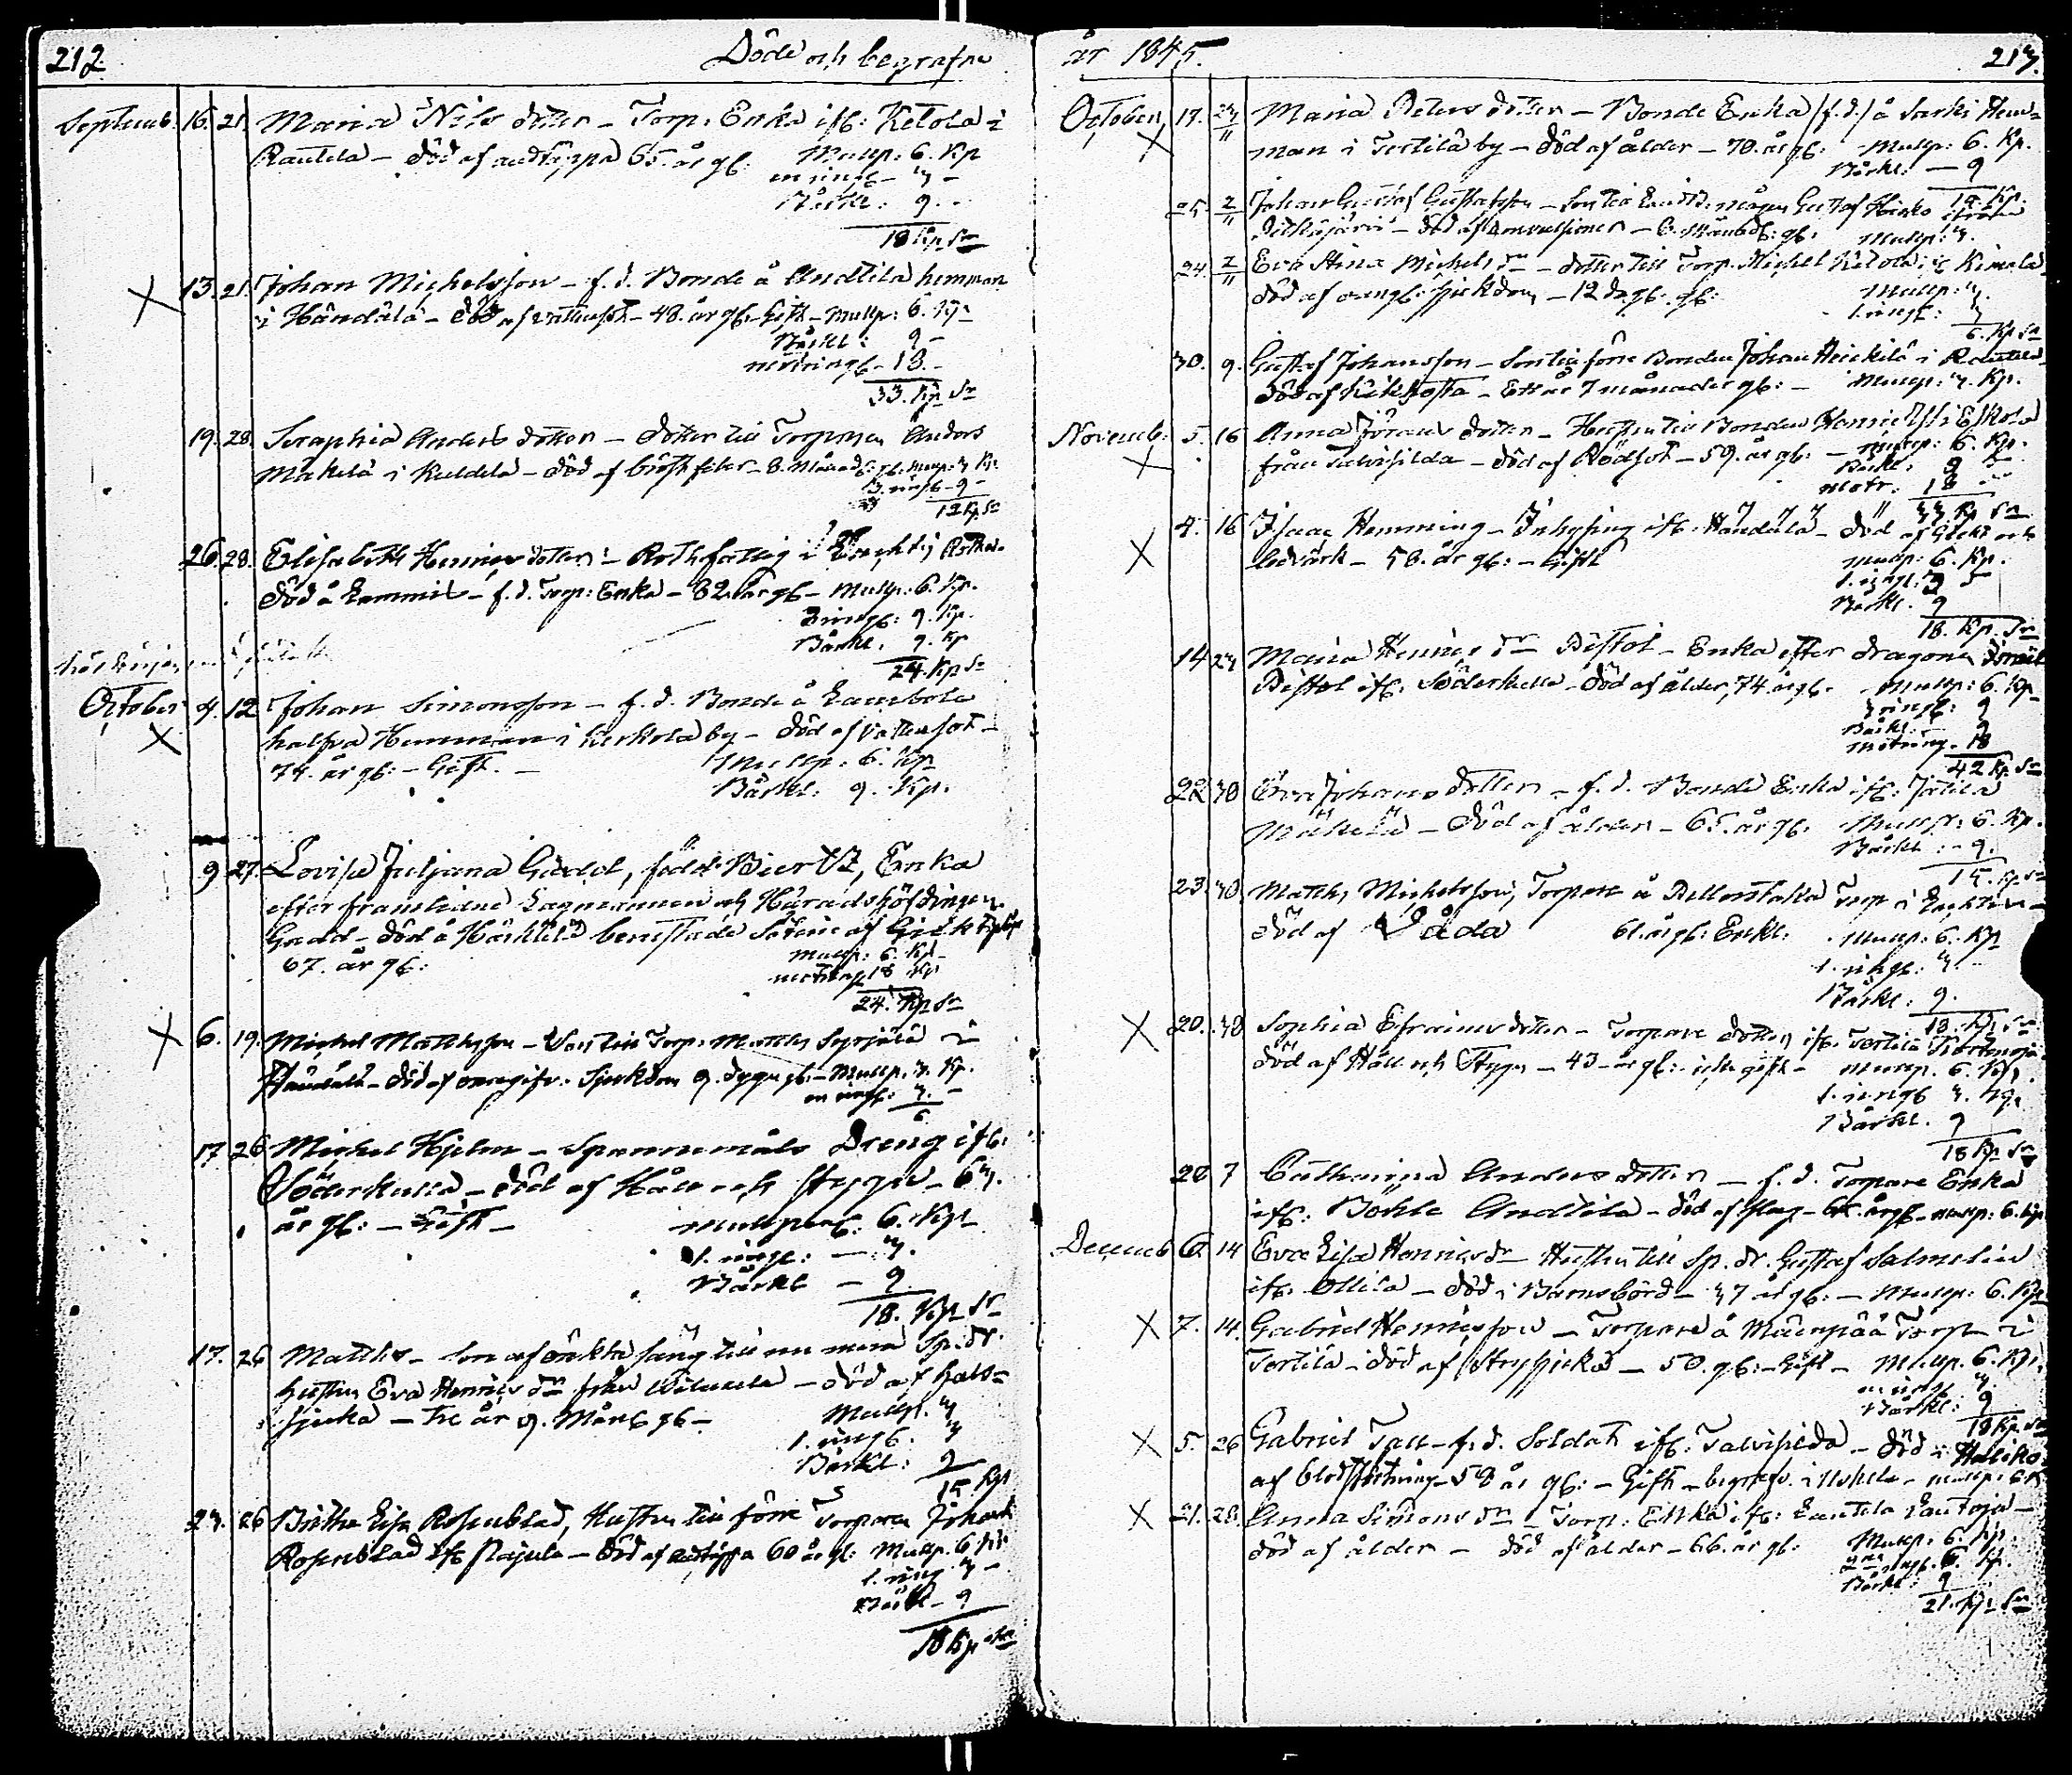 212 Döde och begrafne
Septemb. 16. 21. Maria Nils dotter - Torp. Enka ifr: Ketola i
Rautela - död af andtäppa 65. år gl: Mullp: 6. Kp
en ringl - 3 -
Bårkl: 9 -
18 Kp Sr
X 13. 21. Johan Michelsson - f. d. Bonde å Andtila hemman
i Händälä - död af vattusot - 48. år gl. Gift - Mullp: 6. Kp
Bårkl: 9 -
motringl - 18. -
33. Kp Sr
19. 28. Seraphia Anders dotter - dotter till Torparen Anders
Mäkelä i Kuldela - död af bröstfeber - 8. Månad gl. Mullp: 3 Kp.
3. ringl - 9 -
12 Kp Sr
26. 28. Elisabeth Henrics dotter - Rothfattig i
död å Lammil - f. d. Torp: Enka - 82 år gl - Mullp: 6. Kp.
3 ringl: 9. Kp.
Bårkl. 9. Kp
24. Kp Sr
October 4. 12. Johan Simonsson - f. d. Bonde å Lambola
X halfva Hemman i Kerkola by - död af vattusot -
74. år gl: - Gift. - Mullp: 6. Kp
Bårkl: 9. Kp.
9 27. Lovisa Juliana Gadd, född Biertz, Enka
efter framlidne Lagmannen och Häradshöfdingen
Gadd - död å Härkälä benestade Säterie af Gickt
67. år gl: Mullp: 6. Kp -
motringl 18 Kp
24. Kp Sr
X 6. 19. Michel Mattsson - Son till Torp. Matths Syrjälä i
Händälä - död af oangifv. Sjukdom 9. dygn gl: - Mullp. 3. Kp.
en ringl: 3. -
6
17. 26 Michel Hjelm - Spannemåls Dreng ifr:
Söderkulla - död af Håll och Stygn - 63.
år gl: - Gift - Mullpeng: 6. Kp
1. ringl: - 3.
Bårkl - 9
18. Kp Sr
17. 26 Matths - Son af oäkta säng till nu mera Sp. dr
hustrun Eva Henrics dr från - död af hals=
sjuka - Tre år 9. Mån gl - Mullp. 3
1. ringl. 3
Bårkl: 9
15 Kp
23. 26 Brita Lisa Rosenblad, Hustru till förre Torparen Johan
Rosenblad ifr Pajula - död af andtäppa 60 år gl: Mullp. 6 Kp
1. ring. 3 -
Bårkl - 9
18 Kp Sr
år 1845. 213.
October, 17. 23/11 Maria Peters dotter - Bonde Enka (f. d.) å Sarki Hem=
X man i Tertilä by - död af ålder - 70. år gl: Mullp: 6. Kp.
Bårkl: - 9
15 Kp.
25. 2/11 Johan Gustaf Gustafsson - Son till Gustaf
- död af Convulsioner - 6. Månad: gl: Mullp: 3.
24. 2/11 Eva Stina Michels dr - dotter till Torp. Michel Ketola i
död af oangl: Sjukdom - 12 dr gl: gl: Mullp: 3.
1. ringl: 3
6. Kp Sr
30. 9. Gustaf Johansson - Son till förre Bonden Johan Heickilä i Rautela
död af Kikhosta - Ett år 7 månader gl: - Mullp: 3. Kp.
Novemb: 5. 16 Anna Jörans dotter - Hustru till Bonden Henric
X från Talvisilda - död af Rödsot - 59. år gl: - Mullp: 6. Kp.
Bårkl: 9
Motr. 18
33 Kp Sr
X 4. 16 Isaac Hemming - Inhysing ifr: Händälä - död af Gickt och
ledvärk - 58. år gl: - Gift Mullp: 6. Kp.
1. ringl: 3
Bårkl. 9
18. Kp. Sr
14 23 Maria Henrics dr Pistol - Enka efter dragonen
Pistol ifr: Söderkulla - död af ålder, 74 år gl. Mullp: 6. Kp
3 ringl: 9
Bårkl: 9
motring. 18
42 Kp Sr
22 30 Eva Johans dotter - f. d. Bonde Enka ifr: Jotila
Mäkelä - död af ålder - 65. år gl. Mullp: 6. Kp.
Bårkl: - 9.
15. Kp Sr
23. 30. Matths Michelsson, Torpare å Torp i
död af Våda 61. år gl: Enkl: Mullp: 6. Kp
1. ringl: 3.
Bårkl: 9.
18. Kp Sr
X 20. 30 Sophia Efraims dotter - Torpare dotter ifr. Tertilä
död af Håll och Stygn - 43 - år gl: - icke gift - Mullp. 6. Kp.
1. ringl 3. Kp.
Bårkl. 9
18 Kp Sr
28 7 Catharina Anders dotter - f. d. Torpare Enka
ifr. Böhle Andtila - död af slag - 65. år gl - Mullp: 6. Kp
Decemb 6. 14 Eva Lisa Henrics dr - Hustru till Sp. dr. Gustaf Salmelin
ifr: Ollila - död i Barnsbörd - 37 år gl: - Mullp: 6. Kp
X 7. 14. Gabriel Henricsson - Torpare å Mäenpää Torp i
Tertilä - död af - 50. gl: - Gift - Mullp. 6. Kp.
en ringl 3
Bårkl: 9
18 Kp Sr
X 5. 26 Gabriel Tall - f. d. Soldat ifr: Talvisilda - död i Halliko
af blodstörtning - 58 år gl: - Gift - begrafv. i Uskela - Mullp: 6 K
X 21. 28. Anna Simons dr - Torp: Enka ifr: Lautela Lautoja -
död af ålder - död af ålder - 66. år gl: Mullp: 6. Kp.
2 ringl. 6. Kp.
Bårkl: 9
21. Kp Sr